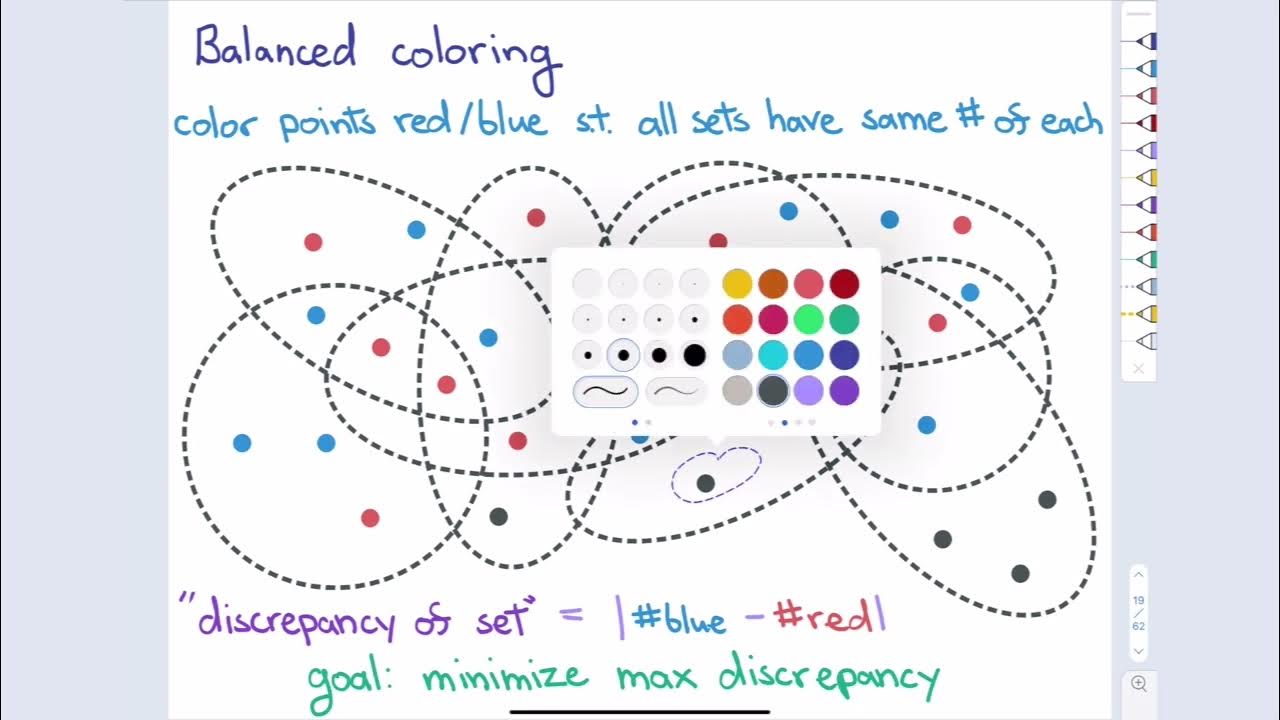 Balanced coloring
color points red/blue s.t. all sets have same # of each
"discrepancy of set" = |#blue - #red|
goal: minimize max discrepancy
19
/
62